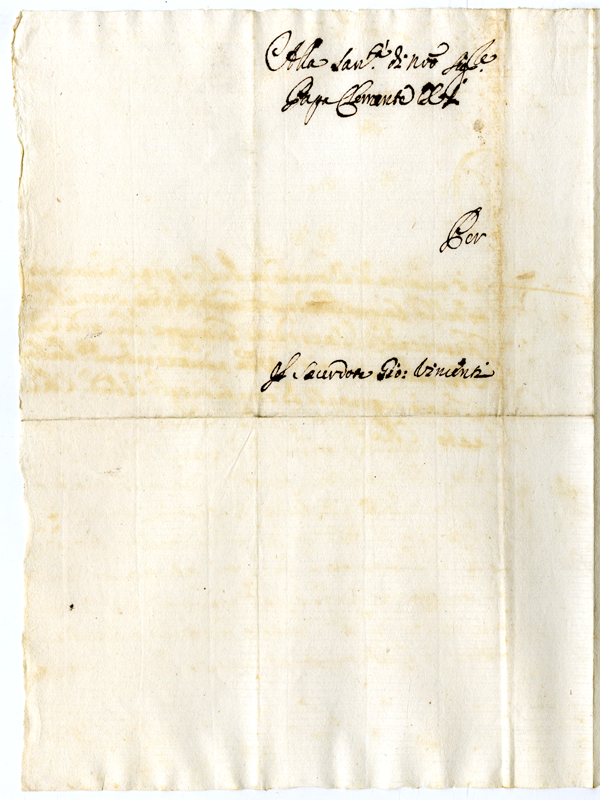 Alla Sant.à di nrõ Sig.re
Papa Clemente XI
Per
Il Sacerdote Gio: Vincenti